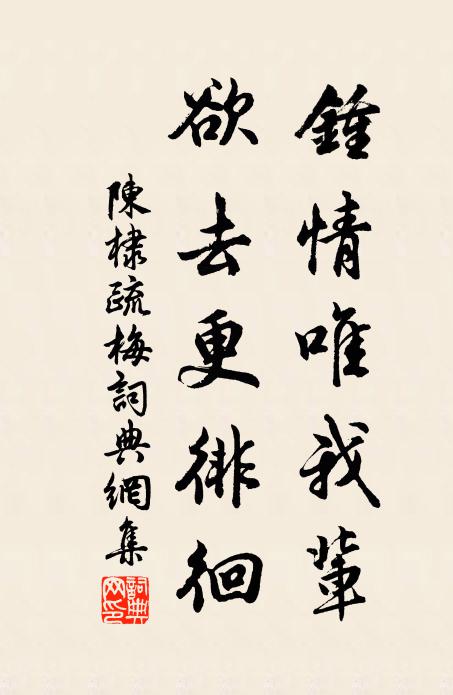 鍾情唯我輩
欲去更徘徊
陳棣疏梅詞典網集
詞典网印